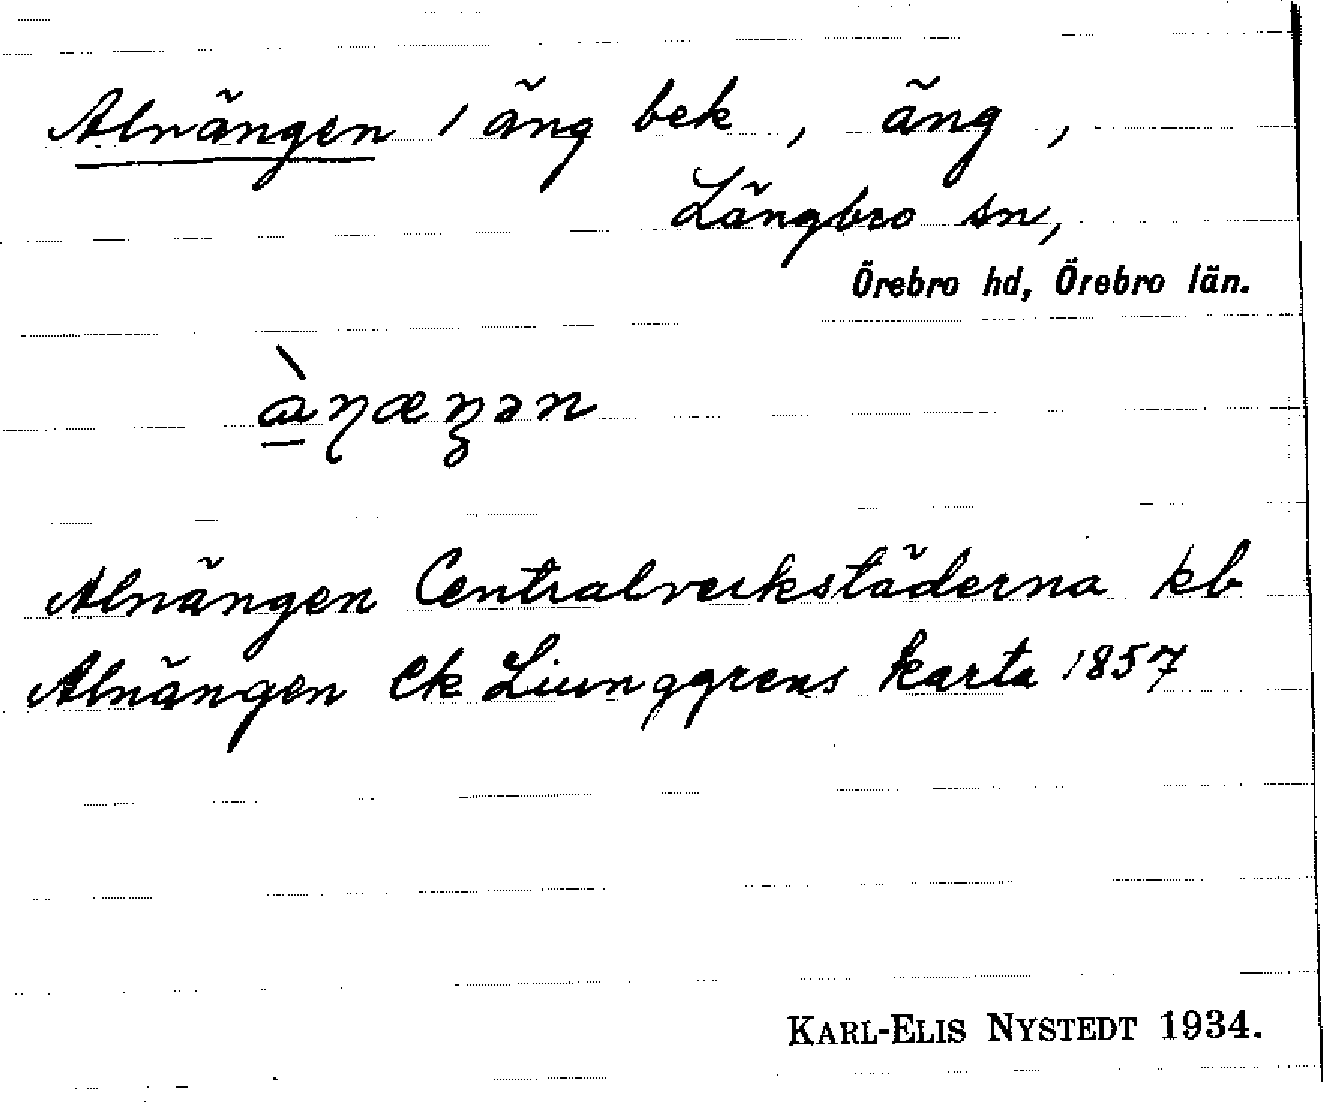 Alnängen / äng bek, äng,
Längbro sn,
Örebro hd, Örebro län.
Alnängen Centralverkstäderna kb
Alnängen Ck Ljunggrens karta 1857
KARL-ELIS NYSTEDT 1934.